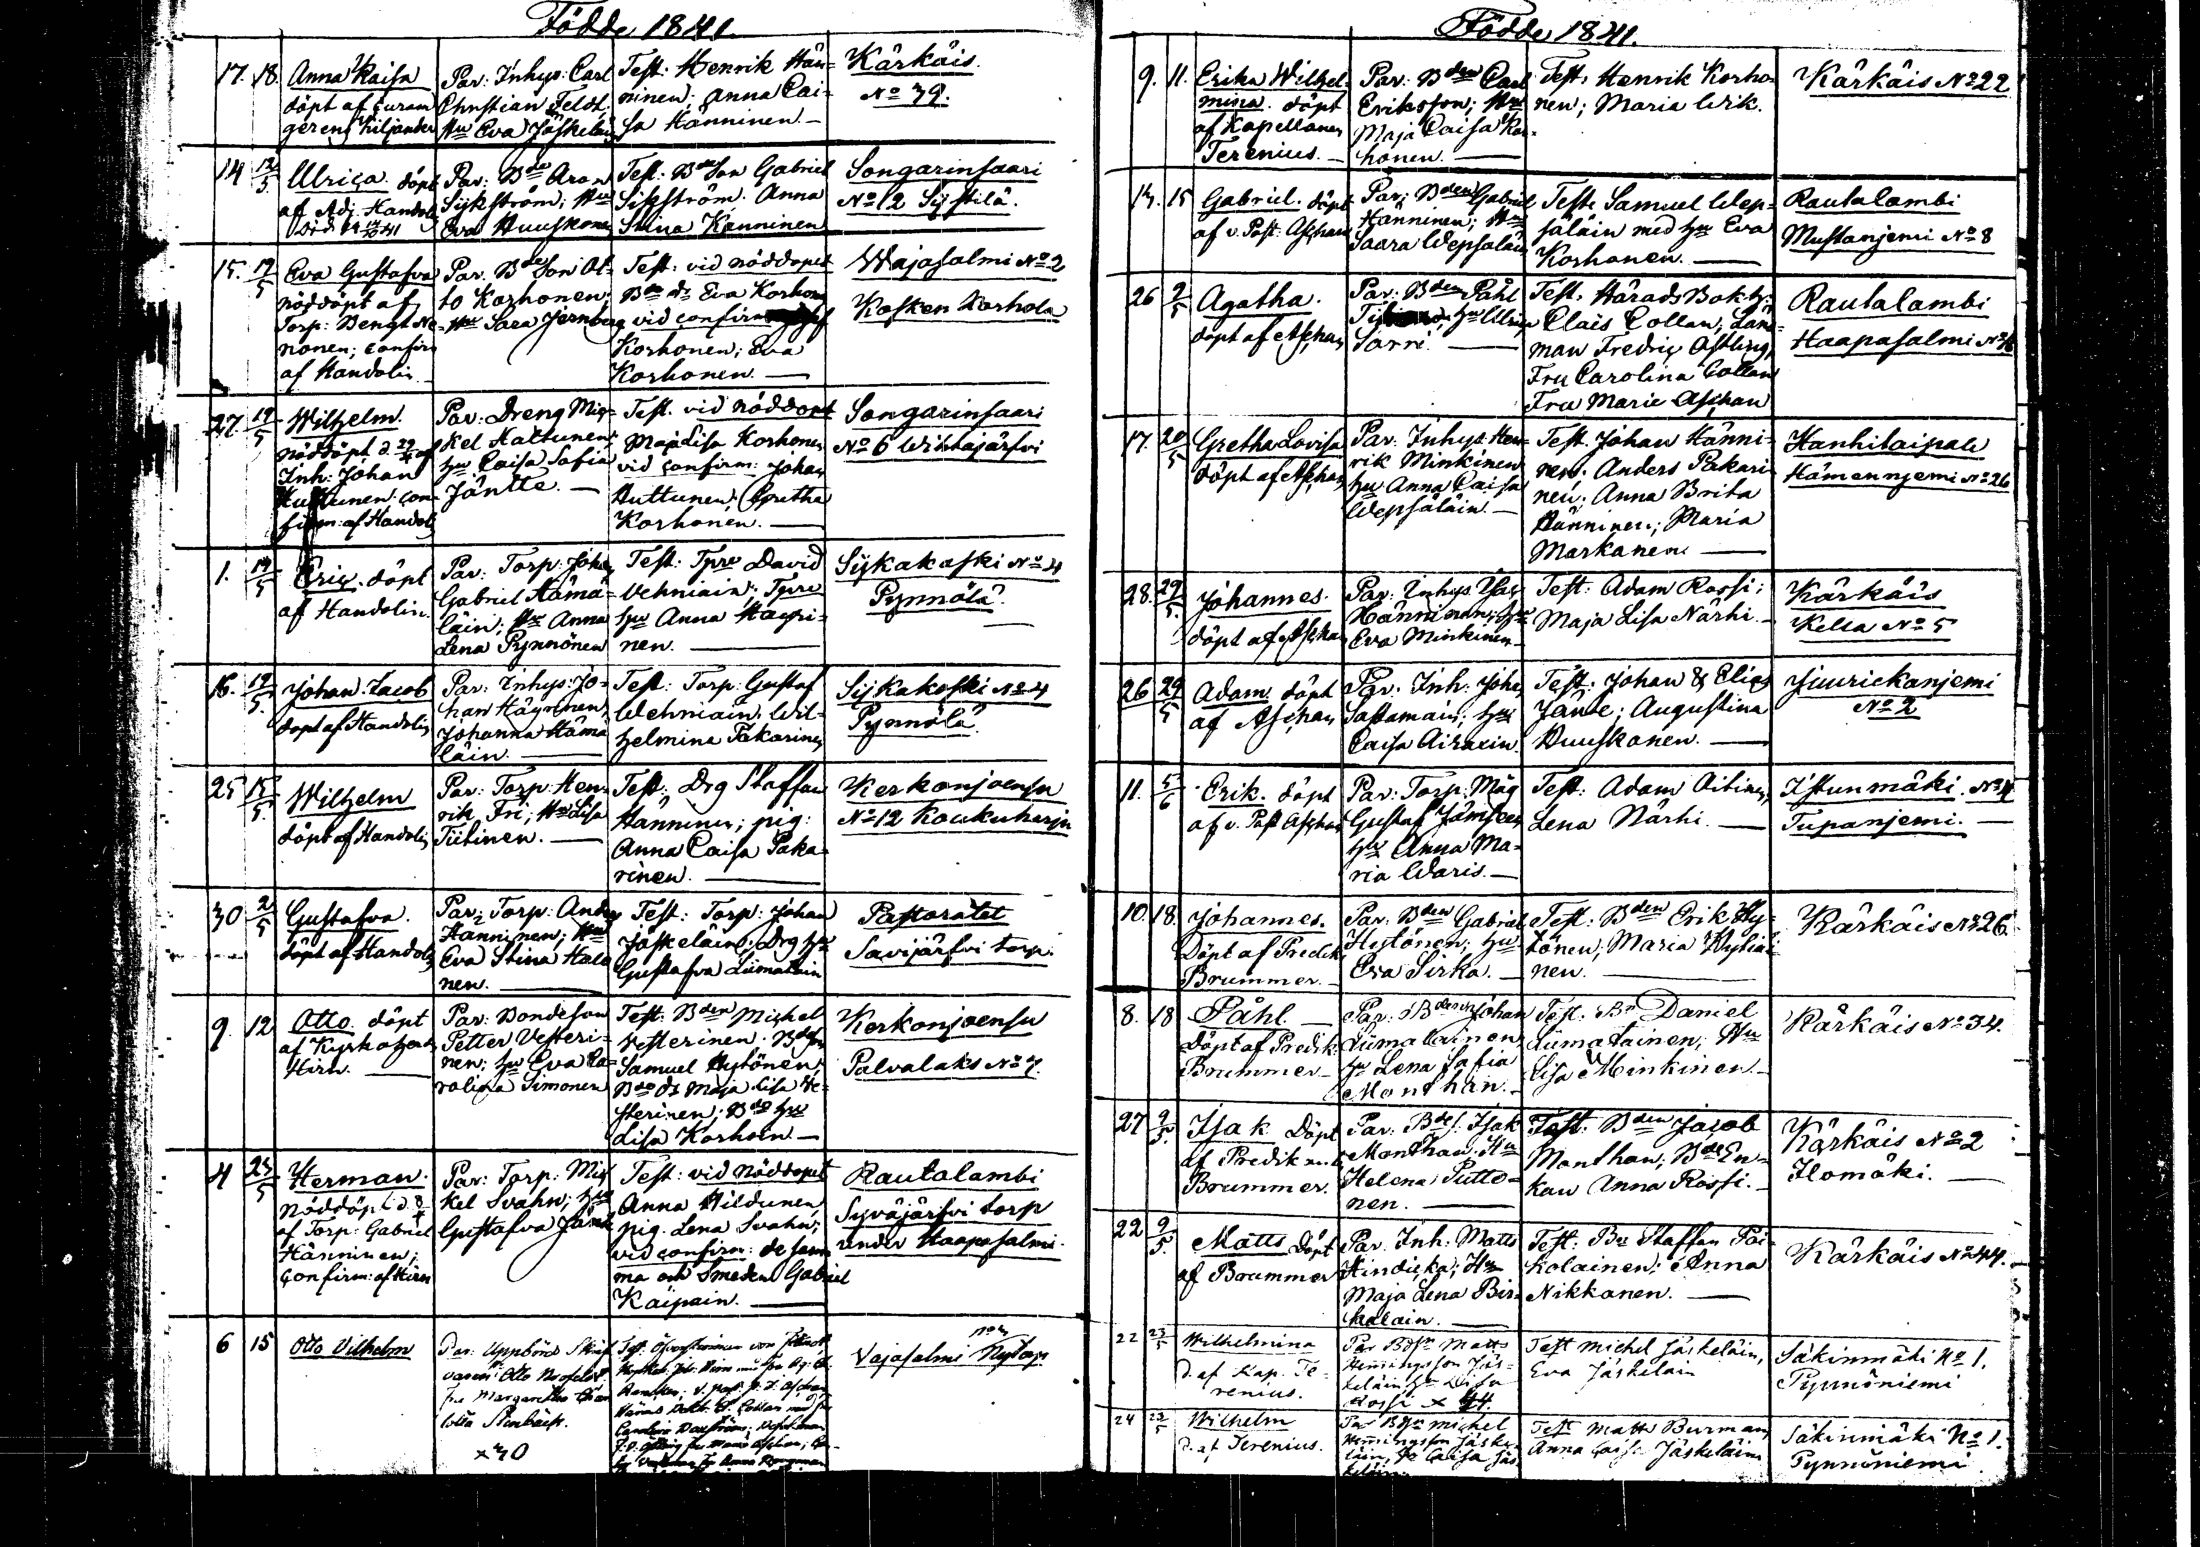 Födde 1841.
17. 18. Anna Kaisa
döpt af
gerens Kiljander
Par: Inhys: Carl
Christian Feldt,
Hu Eva Jäskeläin
Test: Henrik Hän-
ninen; Anna Cai-
sa Hänninen. —
Kärkäis.
No 39.
14 12/5 Ulrica döpt
af Adj. Handol
Par: Bdo Aron
Sykström; Hu
Eva Huuskonen
Test: BdeSon Gabriel
Sykström. Anna
Stina Kanninen
Songarinsaari
No 12
15. 19/5 Eva Gustafva
nöddöpt af
Torp: Bengt Ne-
nonen; confirm
af Handolin
Par. BdeSon Ot-
to Korhonen;
Hu Sara Jernberg
Test: vid nöddopet
Bde dr Eva Korhonen
vid confirm
Korhonen; Eva
Korhonen. —
Wajasalmi No 2
Kosken Korhola
27 19/5 Wilhelm.
nöddöpt d. 29/4 af
Inh: Johan
Huttunen con-
firm: af Handol
Par: Dreng Mic-
kel Kaltunen;
hu Caisa Sofia
Jäntte. —
Test. vid nöddopet
Maja Lisa Korhonen
vid confirm: Johan
Huttunen; Gretha
Korhonen. —
Songarinsaari
No 6 Wihtajärfvi
1. 19/5 Eric. döpt
af Handolin.
Par: Torp: Joha
Gabriel Hämä-
läin; Hu Anna
Lena Pynnönen
Test: Tpre David
Vehniäin; Tpre
hu Anna Haupi-
nen. —
Sykakoski No 4
Pynnölä.
16. 19/5 Johan Jacob
döpt af Handolin
Par: Inhys: Jo-
han Häyrinen,
Johanna Hämä
läin. —
Test: Torp: Gustaf
Wehniäin. Wil-
helmina Pakarinen
Sykakoski No 4
Pynnölä
25 15/5 Wilhelm
döpt af Handolin
Par: Torp: Hen-
rik Fri; Hu Lisa
Tiitinen. —
Test: Drg Staffan
Hänninen; pig:
Anna Caisa Paka-
rinen. —
Kerkonjoensu
No 12 Koukuharju
30 2/5 Gustafva.
döpt af Handolin
Par: Torp: Anders
Hänninen; Hu
Eva Stina Hata
nen. —
Test: Torp: Johan
Jäskeläin; Drg hu
Gustafva Liimatain
Pastoratet
Savijärfvi torp.
9. 12 Otto. döpt
af Kyrkoherden
Hirn. —
Par: Bondeson
Petter Vesteri-
nen; hu Eva Ca-
rolina Simonen
Test: Bden Michel
Vesterinen. Bdesn
Samuel Hytönen;
Bde dr Maja Lisa Ve-
sterinen; Bde hu
Lisa Korhoin —
Kerkonjoensu
Palvalaks No 7.
4 23/5 Herman.
Nöddöpt d. 8/5
af Torp: Gabriel
Hänninen;
confirm: af Hirn
Par: Torp: Mic
kel Svahn; hu
Gustafva Jäntt
Test: vid nöddopet
Anna Hildunen,
pig. Lena Svahn;
vid confirm: de sam
ma och Smeden Gabriel
Kaipain. —
Rautalambi
Syväjärfvi torp
under Haapasalmi
6 15 Otto Vilhelm
Par: Uppbörds Skrif
varen Otto
fru Margaretha Char
lotta Stenbäck.
x 30
Vajasalmi Nytorp
Födde 1841.
9. 11. Erika Wilhel-
mina. döpt
af Kapellanen
Terenius. —
Par: Bden Carl
Eriksson; Hu
Maja Caisa Kor-
honen. —
Test: Henrik Korho-
nen; Maria Wik.
Kärkäis No 22
13. 15 Gabriel. döpt
af v. Past: Aschan
Par; Bden Gabriel
Hänninen; Hu
Saara Wepsäläin
Test: Samuel Wep-
säläin med hu Eva
Korhonen. —
Rautalambi
Mustanjemi No 8
26 2/5 Agatha.
döpt af Aschan
Par: Bden Påhl
hu Ulrica
Sorri. —
Test: HäradsBokh:
Claës Collan; Läns-
man Fredric Östling,
Fru Carolina Collan
Fru Marie Aschan
Rautalambi
Haapasalmi
17. 20/5 Gretha Lovisa
döpt af Aschan
Par: Inhys: Hen-
rik Minkinen
hu Anna Caisa
Wepsäläin. —
Test. Johan Hänni-
nen; Anders Pakari
nen; Anna Brita
Hänninen; Maria
Markanen. —
Hanhitaipale
Hämennjemi No 26
28. 29/5 Johannes.
döpt af Aschan
Par: Inhys: Isac
Hänninen; hu
Eva Minkinen.
Test: Adam Rossi;
Maja Lisa Närhi. —
Kärkäis
Kelsa No 5
26 29/5 Adam. döpt
af Aschan
Par: Inh: Joha
Sattamain; hu
Caisa Airaxin.
Test: Johan & Elias
Jante; Augustina
Huuskonen. —
Juurickanjemi
No 2
11. 5/6 Erik. döpt
af v. Past Aschan
Par: Torp: Mag
Gustaf Jämsen
hu Anna Ma-
ria Waris. —
Test: Adam Oitinen,
Lena Närhi. —
Istunmäki. No 4
Tupanjemi. —
10. 18. Johannes.
Döpt af Predik
Brummer. —
Par: Bden Gabriel
Hytönen; hu
Eva Sirka. —
Test: Bden Erik Hy-
tönen; Maria Kytiäi-
nen. —
Kärkäis No 26
8. 18 Påhl. —
Döpt af Predik
Brummer —
Par: Bden Johan
Liimatainen
hu Lena Sofia
Monthan. —
Test. Bn Daniel
Liimatainen; Hu
Lisa Minkinen —
Kärkäis No 34.
27 9/5. Isak Döpt
af Predik
Brummer.
Par. Bdes. Isak
Monthan. Hu
Helena Putto-
nen. —
Test. Bden Jacob
Monthan; BdeEn-
kan Anna Rossi. —
Kärkäis No 2
Ilomäki. —
22 9/5. Matts Döpt
af Brummer
Par: Inh: Matts
Hindicka; Hu
Maja Lena Bir-
kalain. —
Test: Bn Staffan Poi-
kolainen; Anna
Nikkanen. —
Kärkäis No 44.
22 23/5 Wilhelmina
D. af Kap. Te-
renius.
Par Bdsn Matts
Henningsson Jäs-
keläin hu Lisa
Rossi x 44.
Test Michel Jäskeläin,
Eva Jäskeläin
Säkinmäki No 1.
Pynnöniemi
24 23/5 Wilhelm
D. af Terenius.
Par Bdsn Michel
Henningsson Jäske-
läin, hu Caisa Jäs
keläin
Test Matts Burman
Anna Caisa Jäskeläin
Säkinmäki No 1.
Pynnöniemi